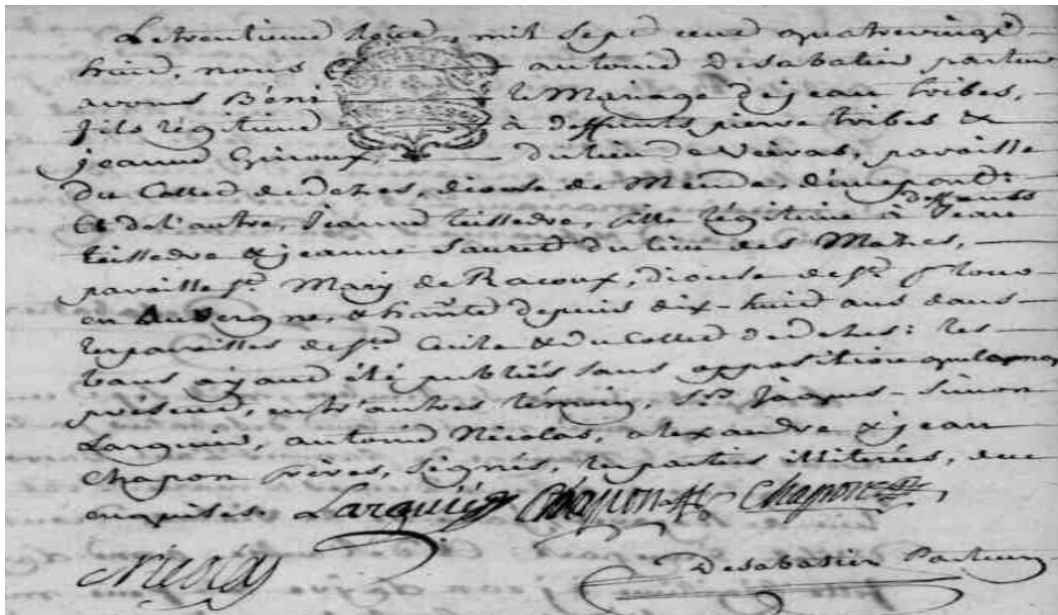 Le trentieme                mil sept cent quatrevingt
huit, nous                antoine Desabatier pasteur
avons Béni                le Mariage de jean tribes,
fils légitime                à deffunts pierre tribes &
jeanne Giroux,                du lieu de Veiras, paroisse
du Collet de Dezes, diocese de Mende, d'une part:
Et de l'autre, Jeanne teissedre, fille légitime à deffunts Jean
teissedre & jeanne Sauret du lieu des Mazes,
paroisse St Mary de Racoux, diocese de St flour
en Auvergne, & habitante depuis dix-huit ans dans
les paroisses de Ste Cecile & du Collet de Dezes: les
bans ayant été publiés sans opposition quelconque
présens, entr'autres témoins, Srs Jaques-Simon
Larguier, antoine Nicolas, alexandre & jean
Chapon frères, signés, les parties illitérées, de ce
enquises. Larguier Chapon Chapon
Nicolas
Desabatier Pasteur